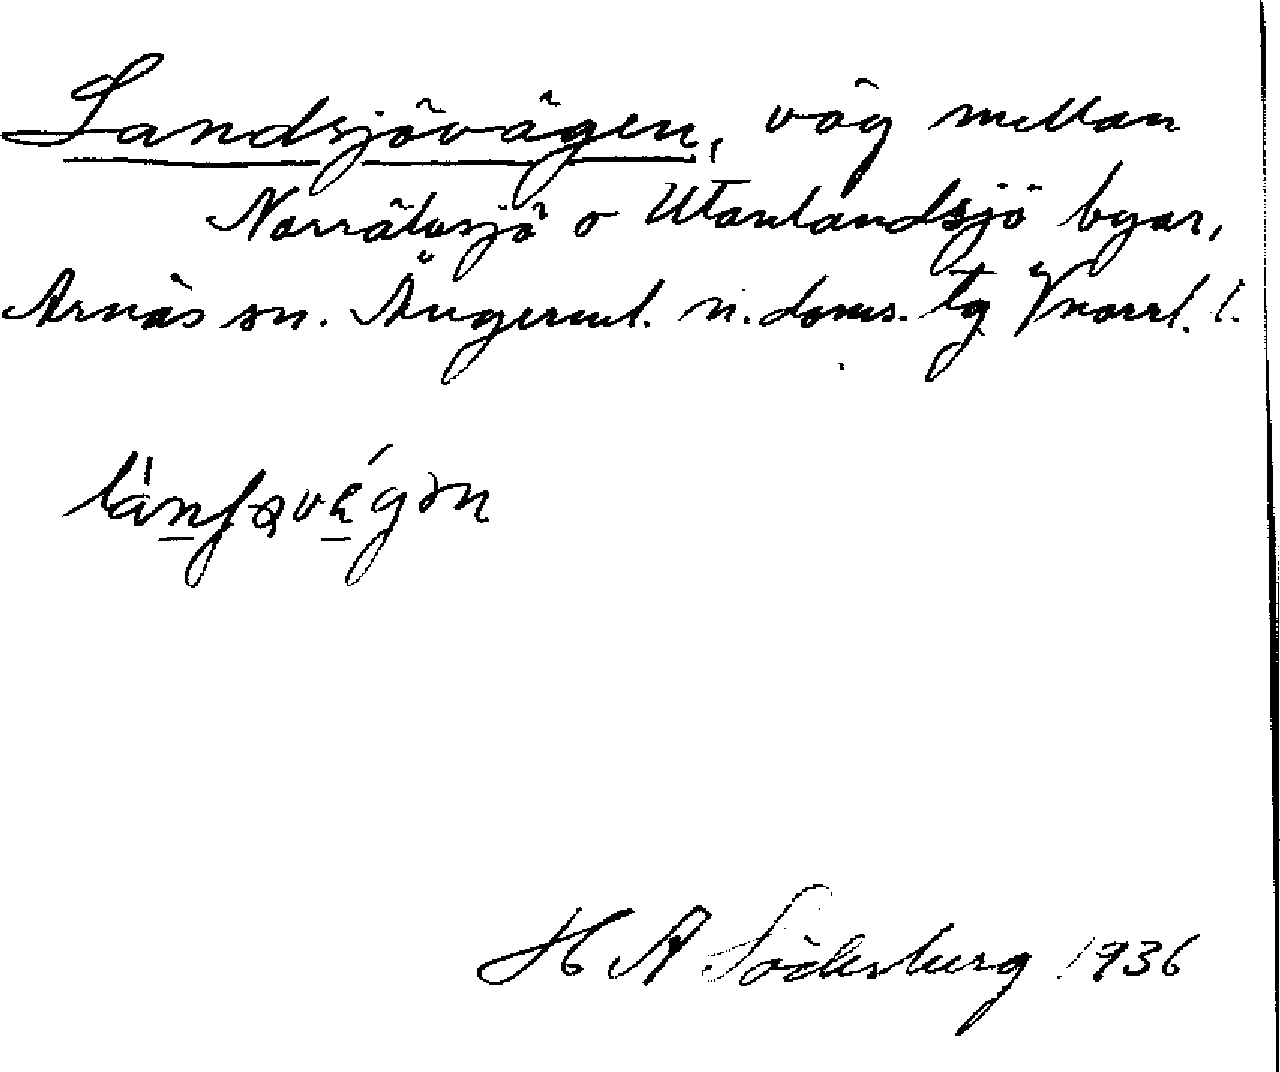 Landsjövägen, väg mellan
Norrälvsjö o Utanlandsjö byar,
Arnäs sn. Ångerml. n. doms. tg Vnorrl. l.
H A Söderberg 1936